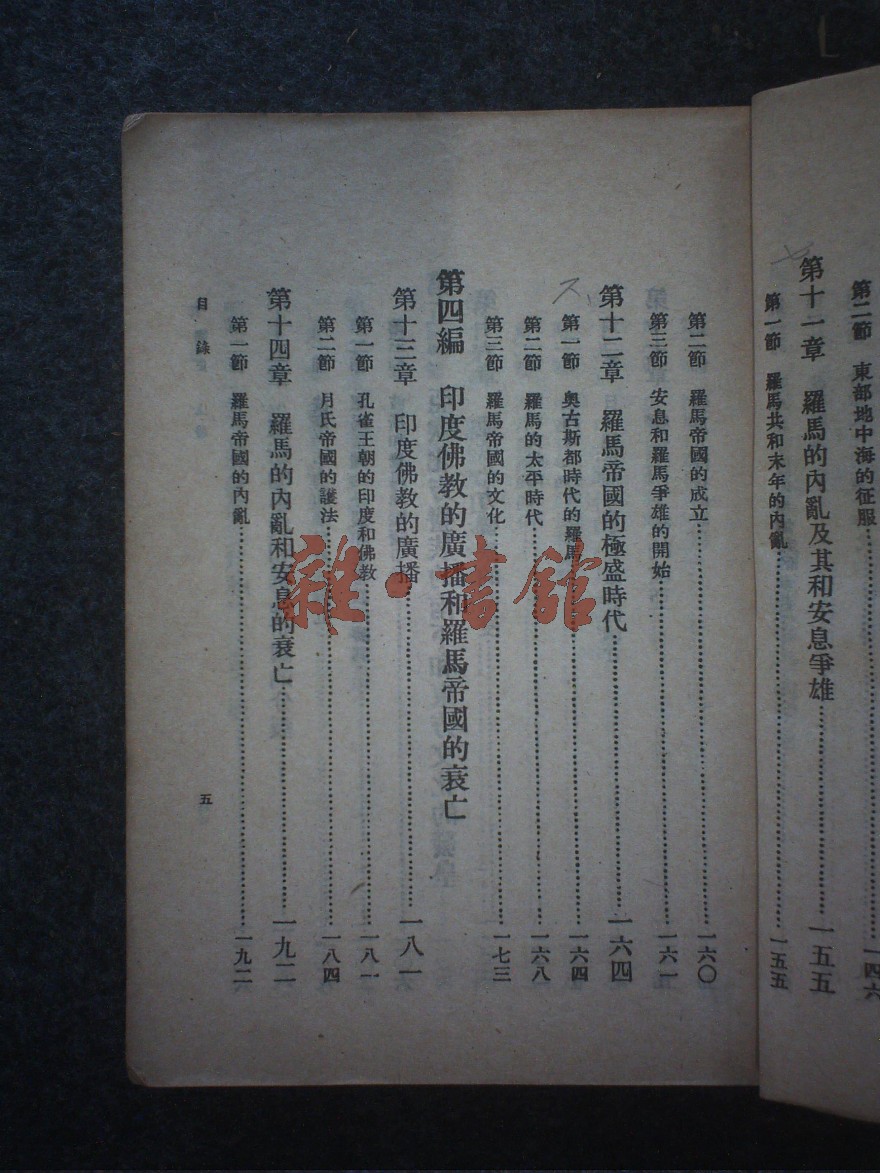 第二節　東部地中海的征服……一四六
第十一章　羅馬的內亂及其和安息爭雄……一五五
第一節　羅馬共和末年的內亂……一五五
第二節　羅馬帝國的成立……一六〇
第三節　安息和羅馬爭雄的開始……一六一
第十二章　羅馬帝國的極盛時代……一六四
第一節　奧古斯都時代的羅馬……一六四
第二節　羅馬的太平時代……一六八
第三節　羅馬帝國的文化……一七三
第四編　印度佛教的廣播和羅馬帝國的衰亡
第十三章　印度佛教的廣播……一八一
第一節　孔雀王朝的印度和佛教……一八一
第二節　月氏帝國的護法……一八四
第十四章　羅馬的內亂和安息的衰亡……一九二
第一節　羅馬帝國的內亂……一九二
目錄
五
雜·書館